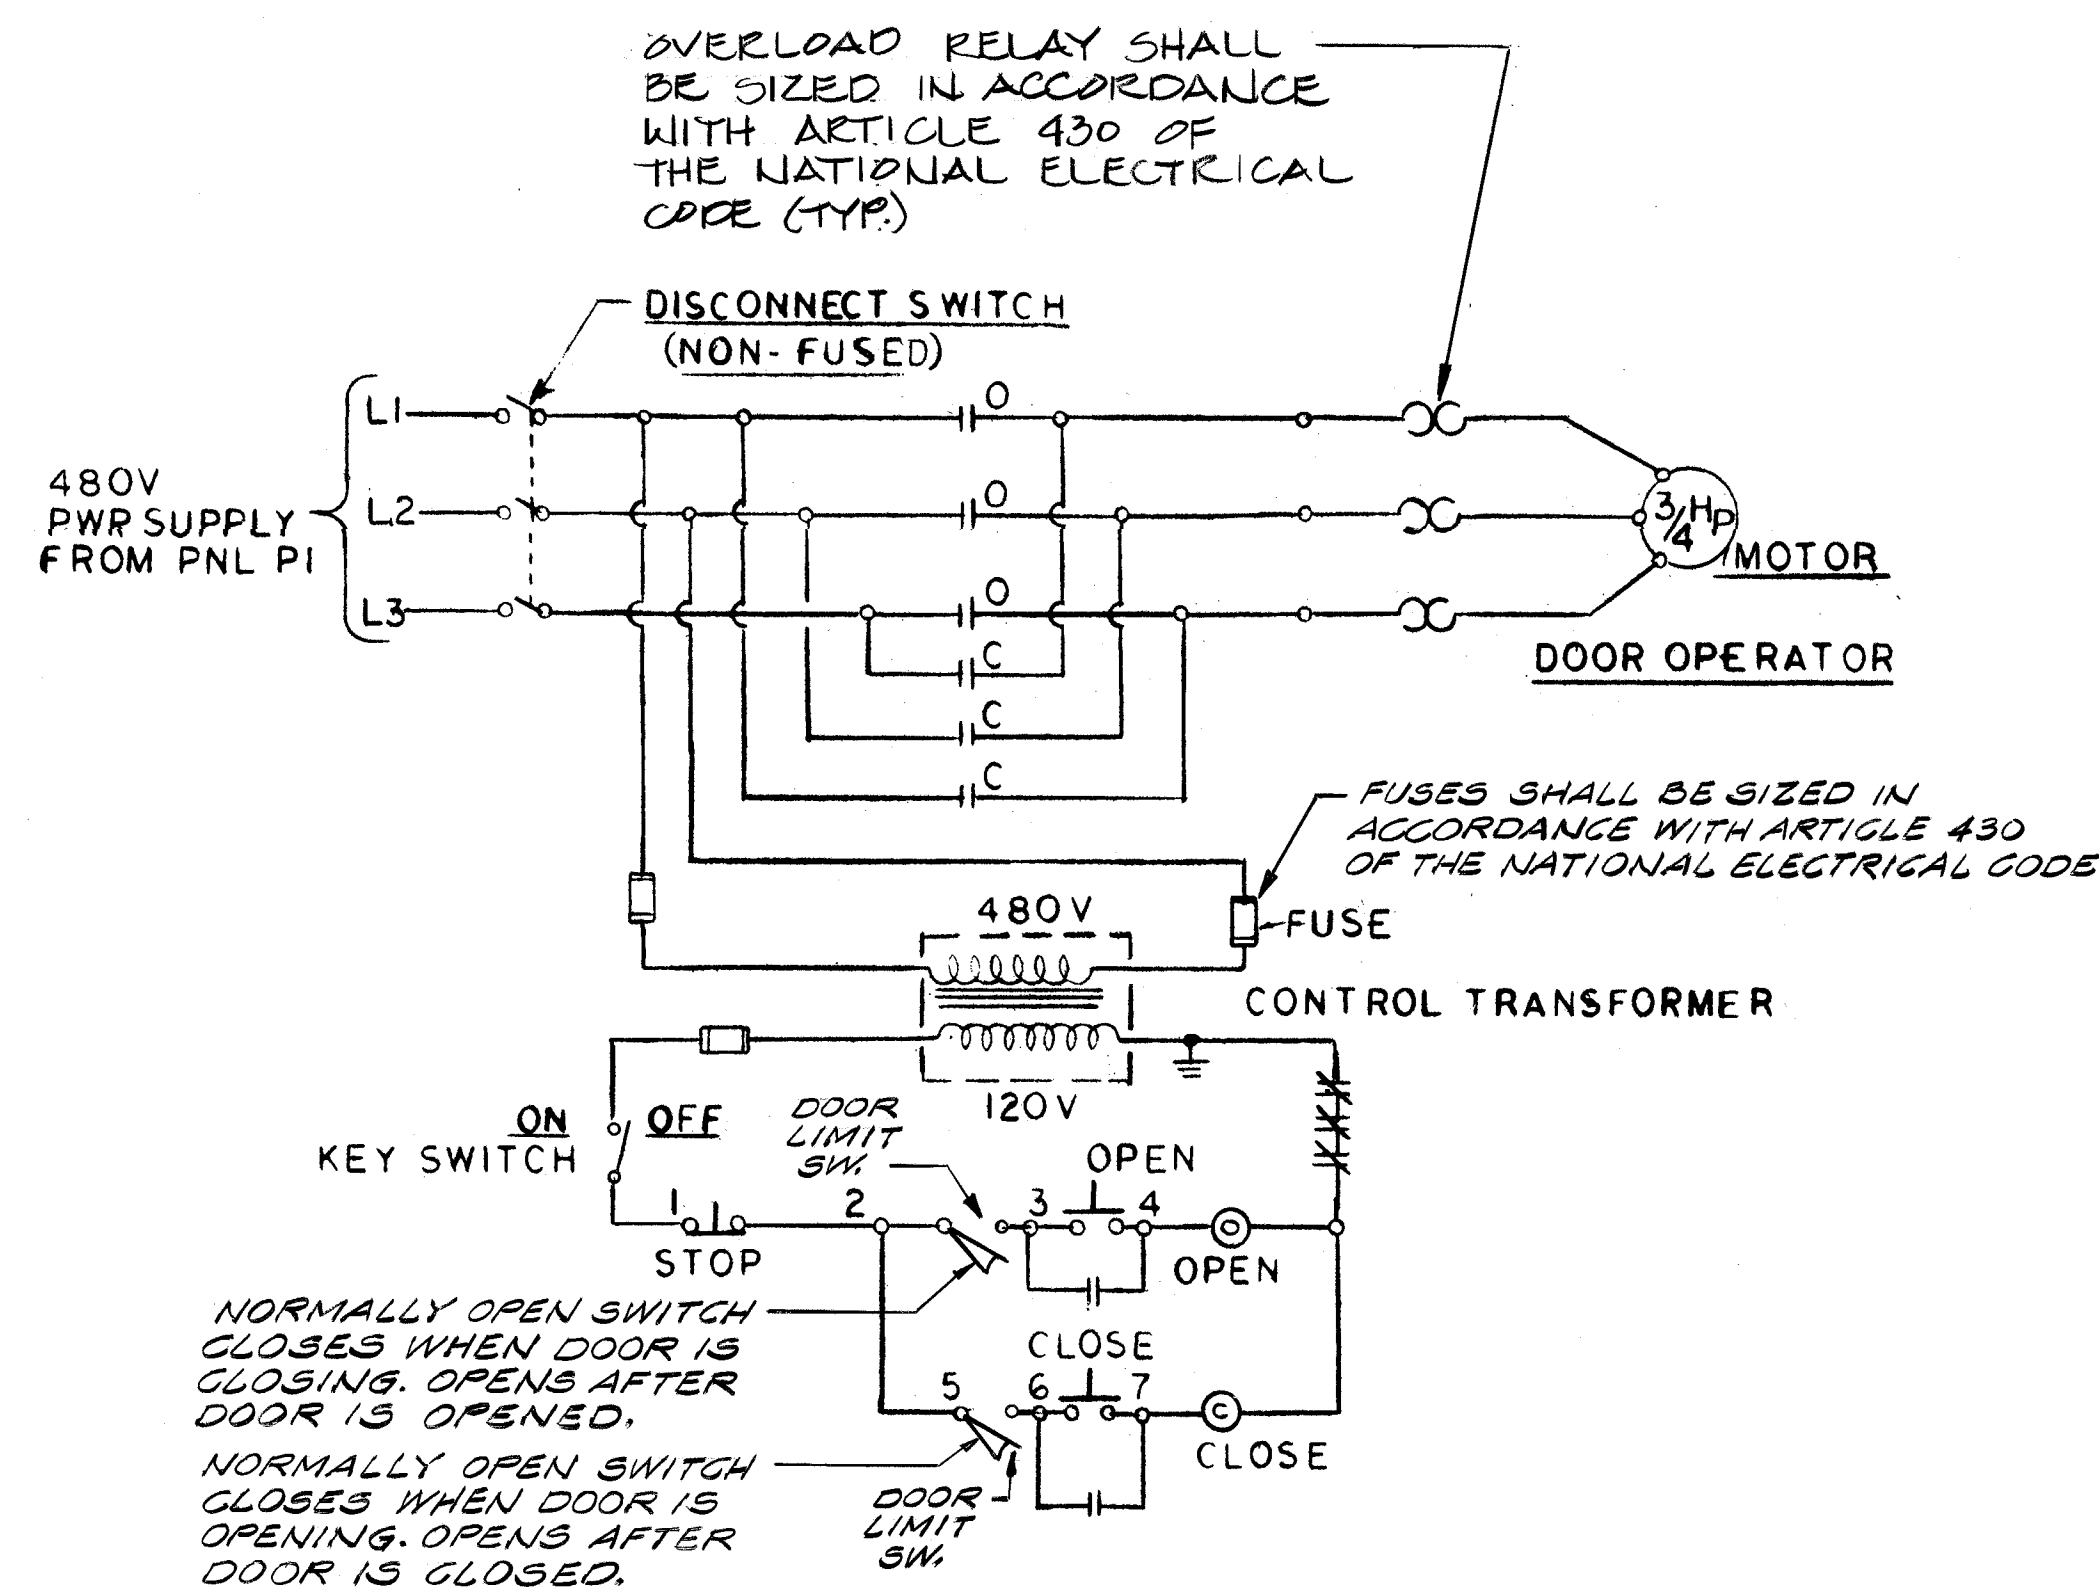 OVERLOAD RELAY SHALL
BE SIZED IN ACCORDANCE
WITH ARTICLE 430 OF
THE NATIONAL ELECTRICAL
CODE (TYP.)
DISCONNECT SWITCH
(NON-FUSED)
L1
O
480V
PWR SUPPLY
FROM PNL P1
L2
O
3/4 HP
MOTOR
L3
O
C
DOOR OPERATOR
C
C
FUSES SHALL BE SIZED IN
ACCORDANCE WITH ARTICLE 430
OF THE NATIONAL ELECTRICAL CODE
480V
FUSE
CONTROL TRANSFORMER
120V
ON OFF
KEY SWITCH
DOOR
LIMIT
SW.
OPEN
1 2 3 4
O
STOP
OPEN
NORMALLY OPEN SWITCH
CLOSES WHEN DOOR IS
CLOSING. OPENS AFTER
DOOR IS OPENED.
CLOSE
5 6 7
C
CLOSE
NORMALLY OPEN SWITCH
CLOSES WHEN DOOR IS
OPENING. OPENS AFTER
DOOR IS CLOSED.
DOOR
LIMIT
SW.